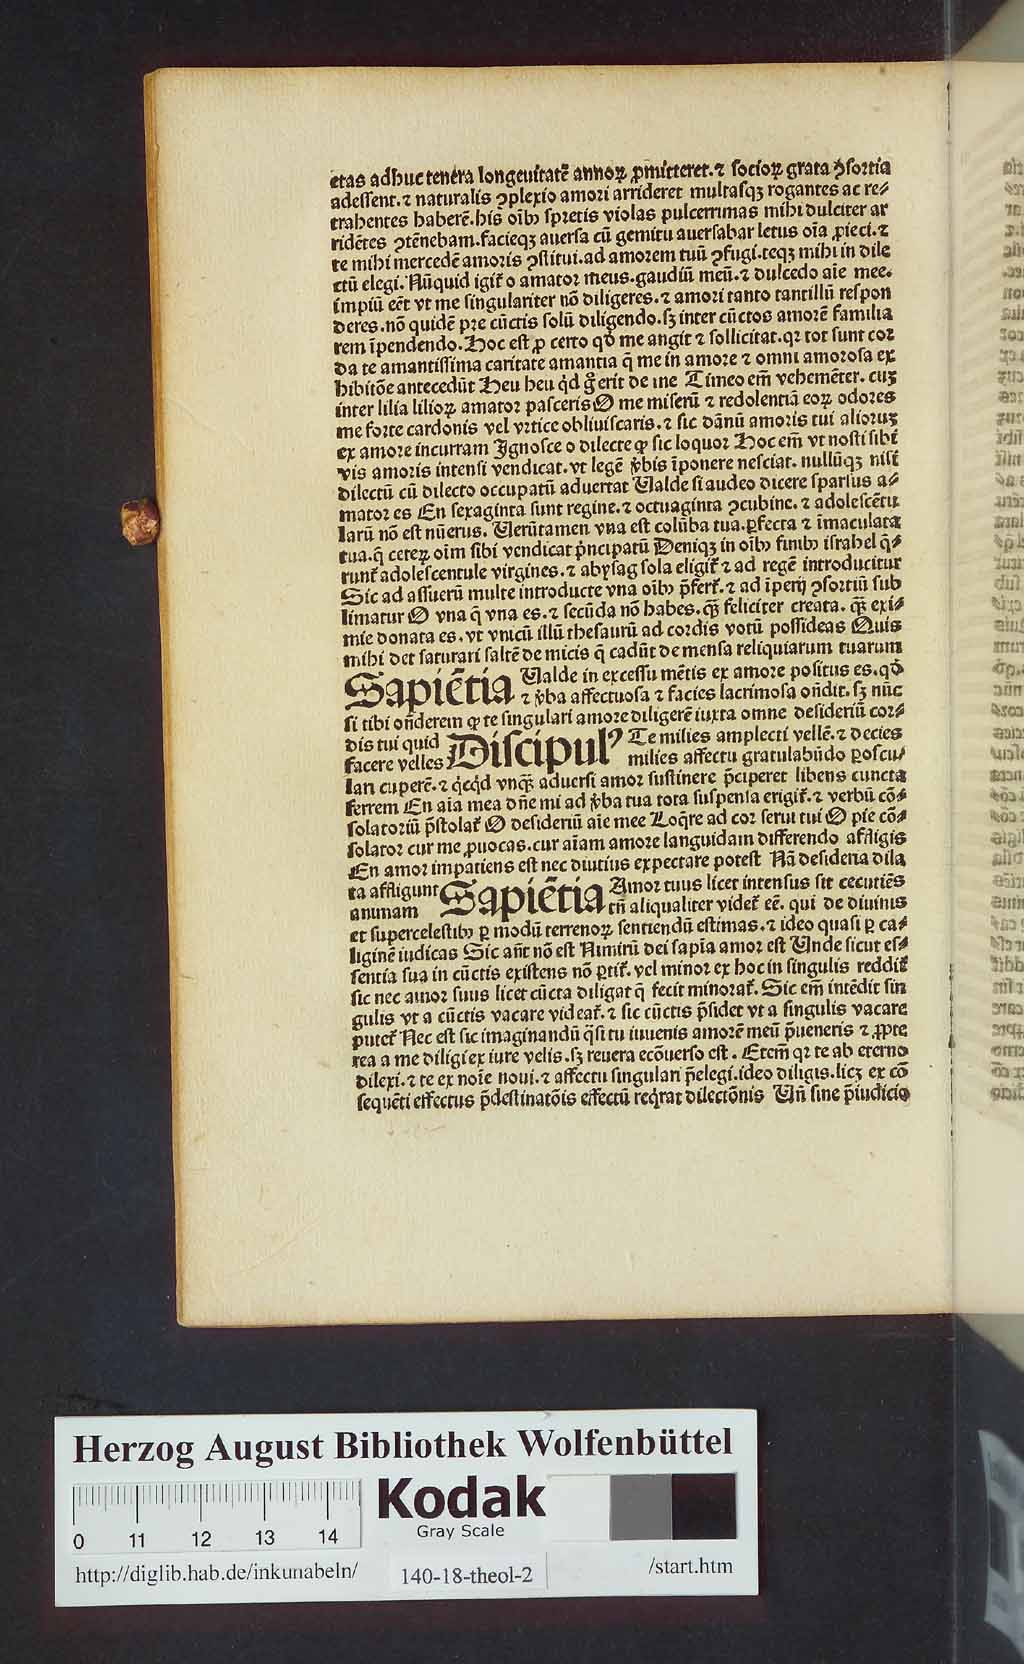 etas adhuc tenera longeuitatē annoꝝ ꝓmitteret. ⁊ socioꝝ grata ꝯsortia
adessent. ⁊ naturalis ꝯplexio amori arrideret multasqꝫ rogantes ac re⸗
trahentes haberē. his oīb⁹ spretis violas pulcerrimas mihi dulciter ar
ridētes ꝯtēnebam. facieqꝫ auersa cū gemitu auersabar letus oīa ꝓieci. ⁊
te mihi mercedē amoris ꝯstitui. ad amorem tuū ꝯfugi. teqꝫ mihi in dile
ctū elegi. Nūquid igit̄ o amator meus. gaudiū meū. ⁊ dulcedo aīe mee.
impiū eēt vt me singulariter nō diligeres. ⁊ amori tanto tantillū respon
deres. nō quidē pre cūctis solū diligendo. sꝫ inter cūctos amorē familia
rem īpendendo. Hoc est ꝓ certo qd̄ me angit ⁊ sollicitat. qꝛ tot sunt cor
da te amantissima caritate amantia q̄ me in amore ⁊ omni amorosa ex
hibitōe antecedūt Heu heu qͥd gͦ erit de me Timeo em̄ vehemēter. cuꝫ
inter lilia lilioꝝ amator pasceris O me miserū ⁊ redolentiā eoꝝ odores
me forte cardonis vel vrtice obliuiscaris. ⁊ sic dānū amoris tui alioruꝫ
ex amore incurram Ignosce o dilecte ꝙ sic loquor Hoc em̄ vt nosti sibi
vis amoris intensi vendicat. vt legē v̄bis īponere nesciat. nullūqꝫ nisi
dilectū cū dilecto occupatū aduertat Valde si audeo dicere sparsus a⸗
mator es En sexaginta sunt regine. ⁊ octuaginta ꝯcubine. ⁊ adolescētu
larū nō est nūerus. Verūtamen vna est colūba tua. ꝑfecta ⁊ īmaculata
tua. q̄ ceteꝝ oīm sibi vendicat pͥncipatū Deniqꝫ in oīb⁹ finib⁹ israhel q̄⸗
runt̄ adolescentule virgines. ⁊ abysag sola eligit̄ ⁊ ad regē introducitur
Sic ad assuerū multe introducte vna oīb⁹ p̄fert̄. ⁊ ad īperij ꝯsortiū sub
limatur O vna q̄ vna es. ⁊ secūda nō habes. qͣꝫ feliciter creata. qͣꝫ exi⸗
mie donata es. vt vnicū illū thesaurū ad cordis votū possideas Quis
mihi det saturari saltē de micis q̄ cadūt de mensa reliquiarum tuarum
Sapiētia Valde in excessu mētis ex amore positus es. qd̄
⁊ v̄ba affectuosa ⁊ facies lacrimosa on̄dit. sꝫ nūc
si tibi on̄derem ꝙ te singulari amore diligerē iuxta omne desideriū cor⸗
dis tui quid
facere velles Discipul⁹ Te milies amplecti vellē. ⁊ decies
milies affectu gratulabūdo ꝑoscu⸗
lari cuperē. ⁊ qͥcqͥd vnqͣꝫ aduersi amor sustinere p̄ciperet libens cuncta
ferrem En aīa mea dn̄e mi ad v̄ba tua tota suspensa erigit̄. ⁊ verbū cō⸗
solatoriū p̄stolat̄ O desideriū aīe mee Loq̄re ad cor serui tui O pie cō⸗
solator cur me ꝓuocas. cur aīam amore languidam differendo affligis
En amor impatiens est nec diutius expectare potest Nā desideria dila
ta affligunt
animam Sapiētia Amor tuus licet intensus sit cecutiēs
tn̄ aliqualiter videt̄ eē. qui de diuinis
et supercelestib⁹ ꝑ modū terrenoꝝ sentiendū estimas. ⁊ ideo quasi ꝑ ca⸗
liginē iudicas Sic aūt nō est Nimirū dei sapīa amor est Unde sicut es⸗
sentia sua in cūctis existens nō ꝑtit̄. vel minor ex hoc in singulis reddit̄
sic nec amor suus licet cūcta diligat q̄ fecit minorat̄. Sic em̄ intēdit sin
gulis vt a cūctis vacare videat̄. ⁊ sic cūctis p̄sidet vt a singulis vacare
putet̄ Nec est sic imaginandū qͣsi tu iuuenis amorē meū p̄ueneris ⁊ ꝓpte
rea a me diligi ex iure velis. sꝫ reuera ecōuerso est. Etem̄ qꝛ te ab eterno
dilexi. ⁊ te ex noīe noui. ⁊ affectu singulari p̄elegi. ideo diligis. licꝫ ex cō
sequēti effectus p̄destinatōis effectū reqͥrat dilectōnis Un̄ sine p̄iudicio
Herzog August Bibliothek Wolfenbüttel
0 11 12 13 14
Kodak
Gray Scale
http://diglib.hab.de/inkunabeln/ 140-18-theol-2 /start.htm